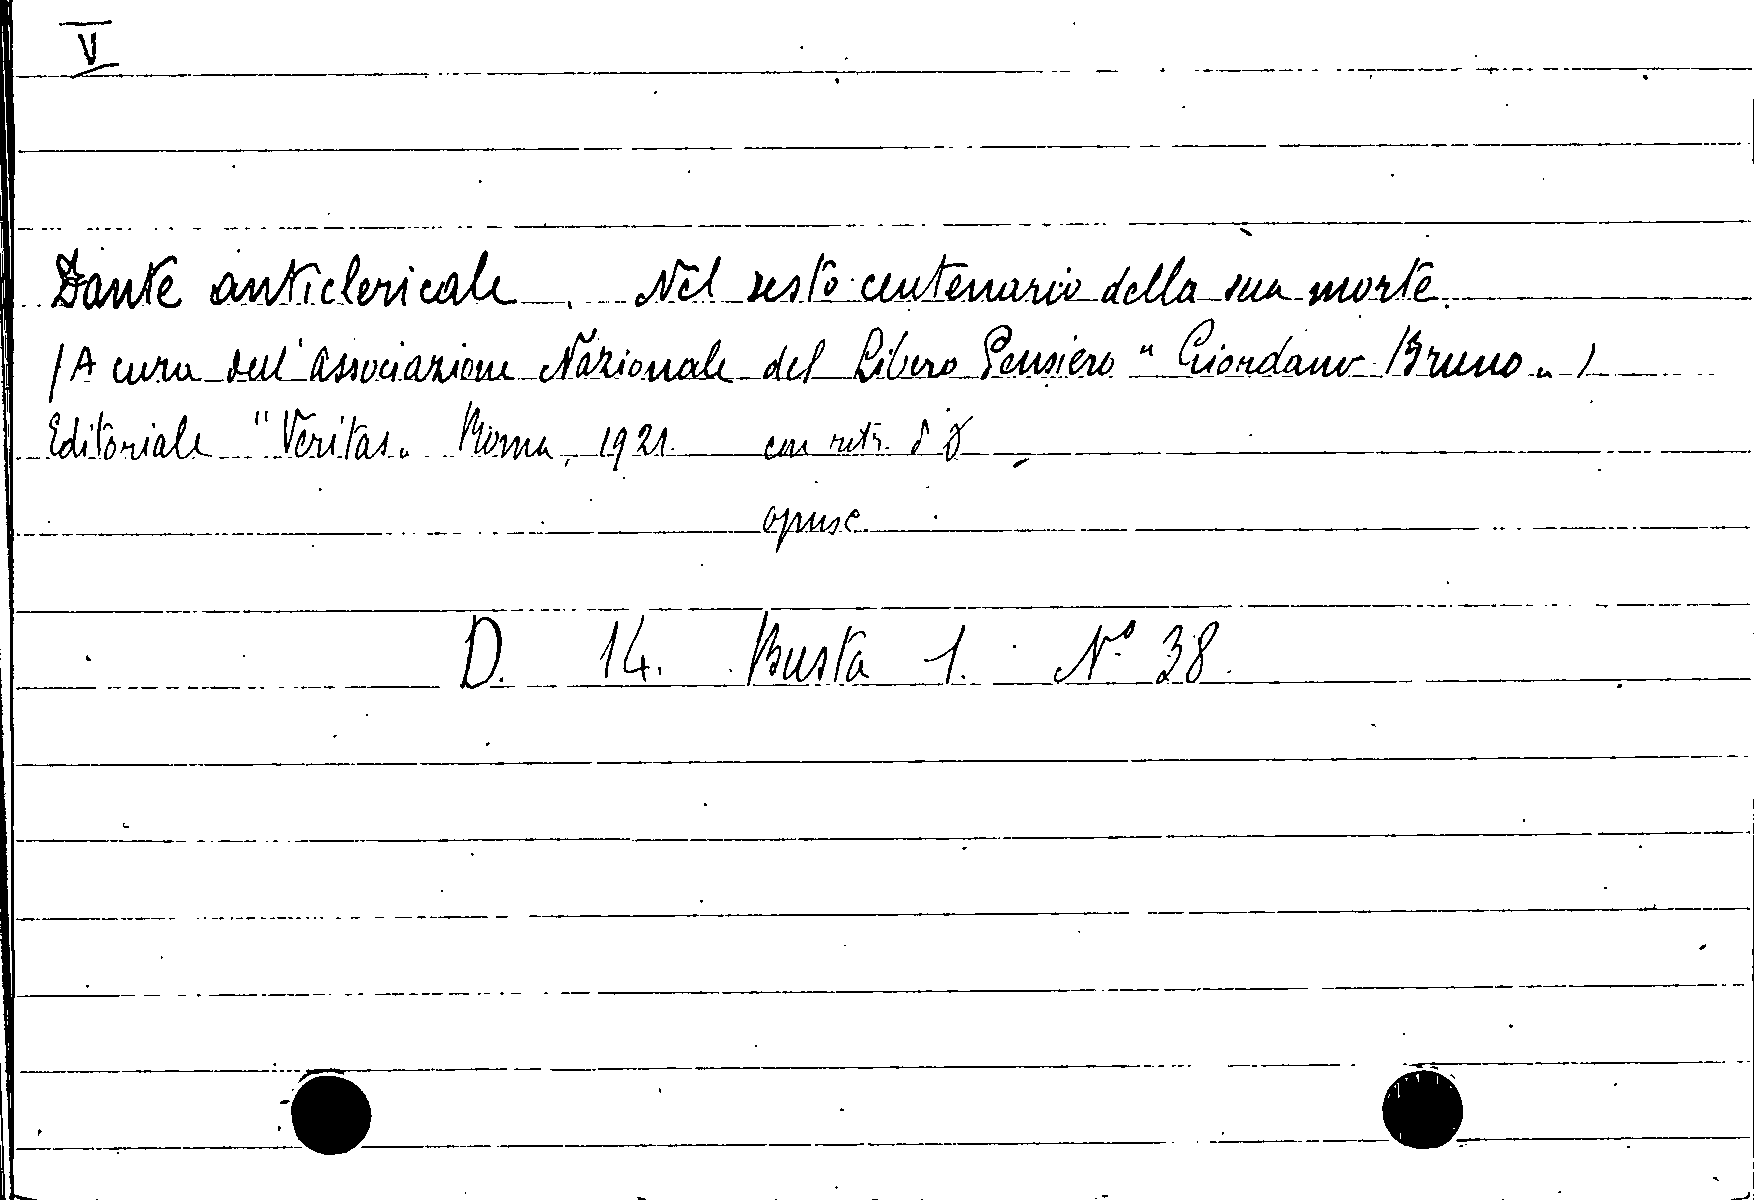 V
Dante anticlericale. Nel sesto centenario della sua morte.
(A cura dell'Associazione Nazionale del Libero Pensiero "Giordano Bruno")
Editoriale "Veritas" Roma, 1921. con ritr. d D
opusc.
D. 14. Busta 1. N° 38.